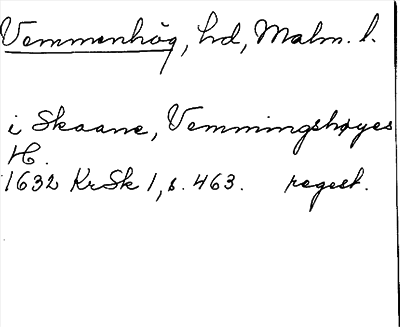 Vemmenhög, hd, Malm. l.
i Skaane, Vemmingshøyes
H.
1632 KrSk 1, s. 463. regest.